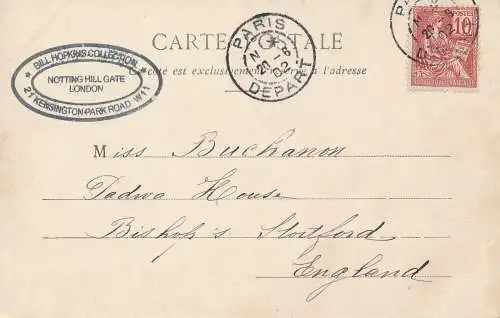 BILL HOPKINS COLLECTION
NOTTING HILL GATE
LONDON
21 KENSINGTON PARK ROAD W11
CARTE POSTALE
Ce côté est exclusivement réservé à l'adresse
PARIS
20 - 6
02
DEPART
10
POSTES
Miss Buchanon
Tadwa House
Bishop's Stortford
England